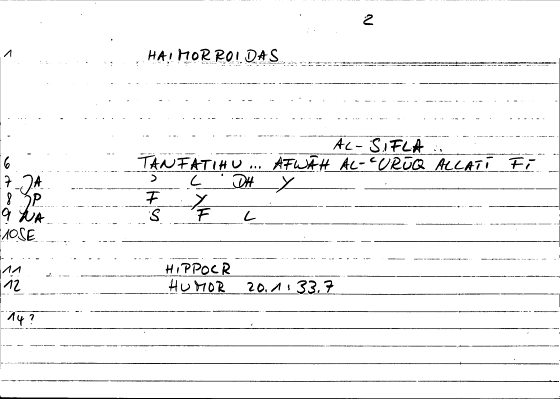 2
1 HAIMORROIDAS
AL-SIFLA ..
6 TANFATIḤU ... AFWĀH AL-ʿURŪQ ALLATĪ FĪ
7 JA ʾ L DH Y
8 JP F Y
9 NA S F L
10 SE
11 HIPPOCR
12 HUMOR 20.1:33.7
14?